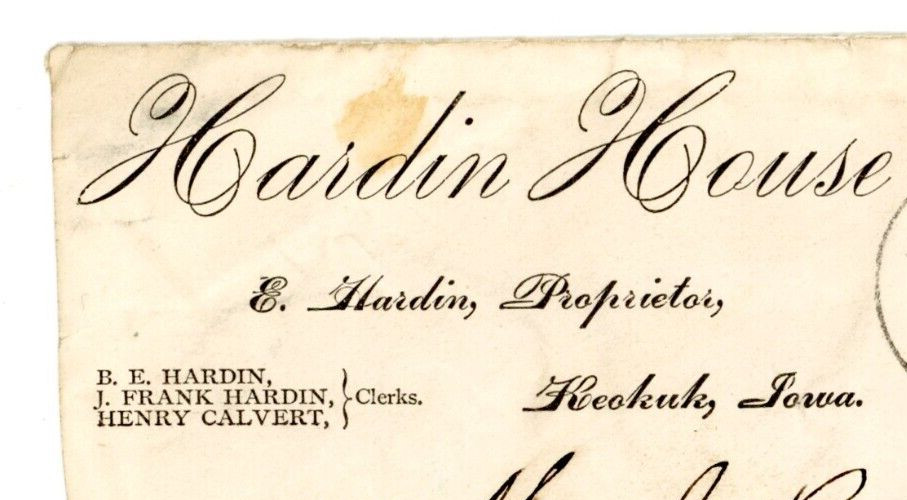 Hardin House
E. Hardin, Proprietor,
B. E. HARDIN,
J. FRANK HARDIN,
HENRY CALVERT,
} Clerks.
Keokuk, Iowa.